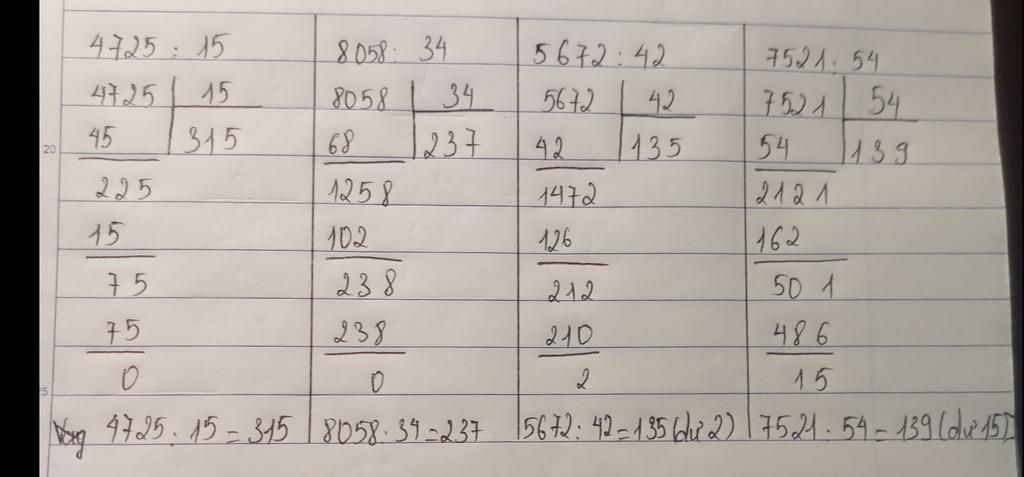 4725 : 15 8058 : 34 5672 : 42 7521 : 54
4725 15 8058 34 5672 42 7521 54
45 315 68 237 42 135 54 139
20
225 1258 1472 2121
15 102 126 162
75 238 212 501
75 238 210 486
0 0 2 15
5
4725 : 15 = 315 8058 : 34 = 237 5672 : 42 = 135 (dư 2) 7521 : 54 = 139 (dư 15)